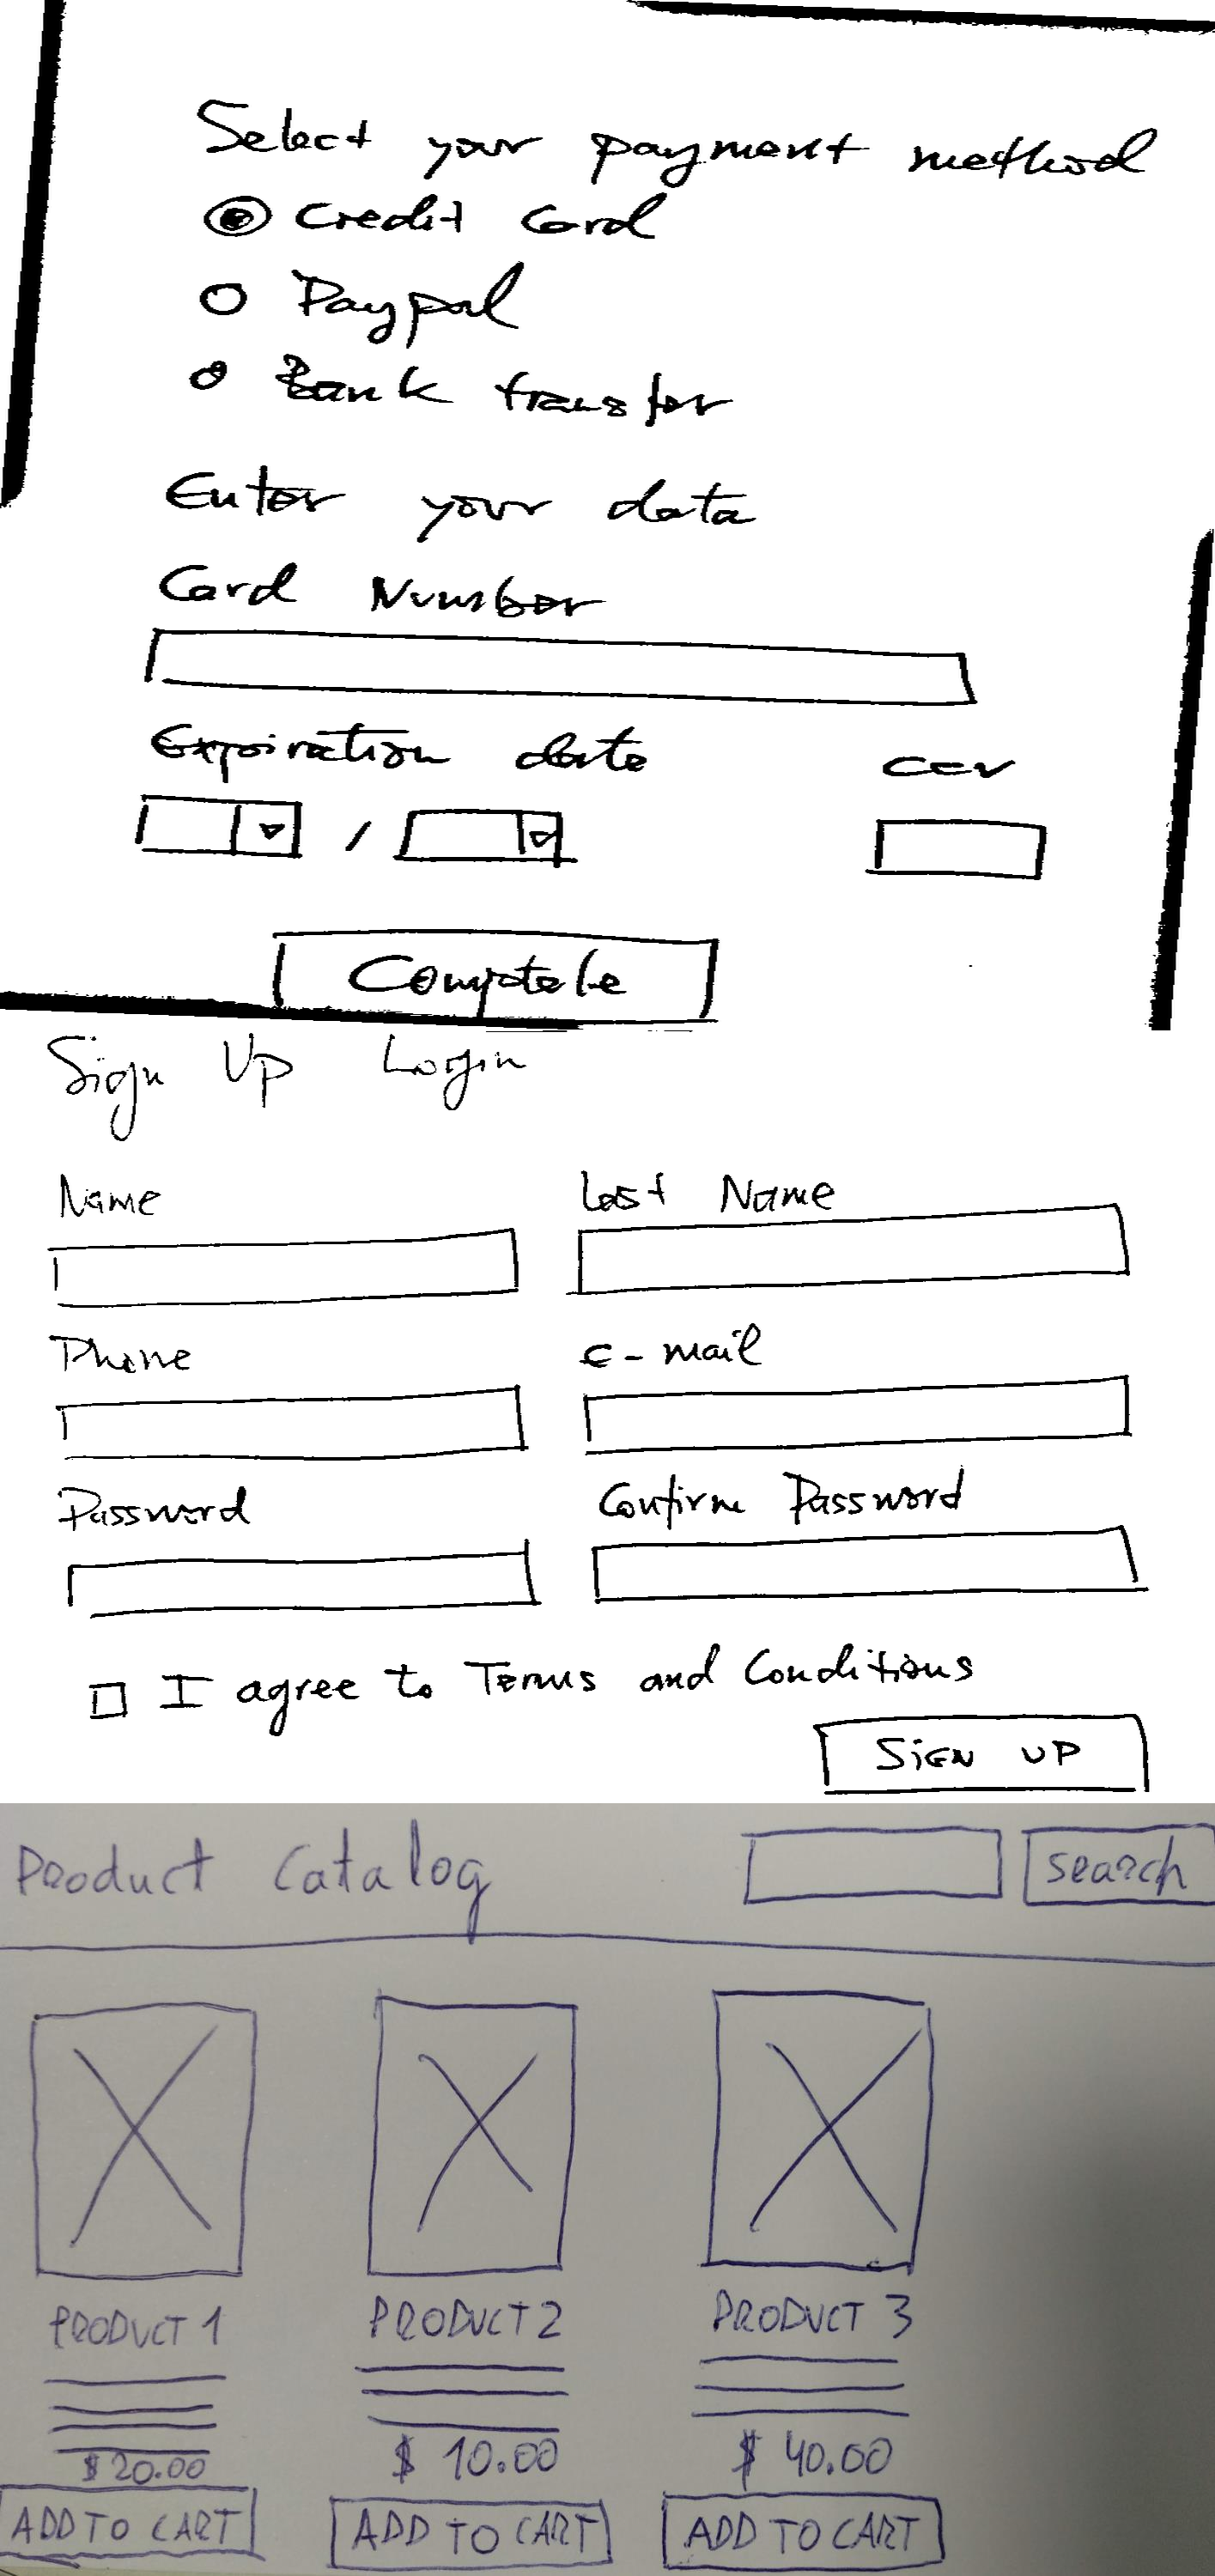 Select your payment method
Credit Card
Paypal
Bank transfer
Enter your data
Card Number
Expiration date ccv
/
Complete
Sign Up Login
Name Last Name
Phone e-mail
Password Confirm Password
I agree to Terms and Conditions
SIGN UP
Product Catalog search
PRODUCT 1 PRODUCT 2 PRODUCT 3
$ 20.00 $ 10.00 $ 40.00
ADD TO CART ADD TO CART ADD TO CART